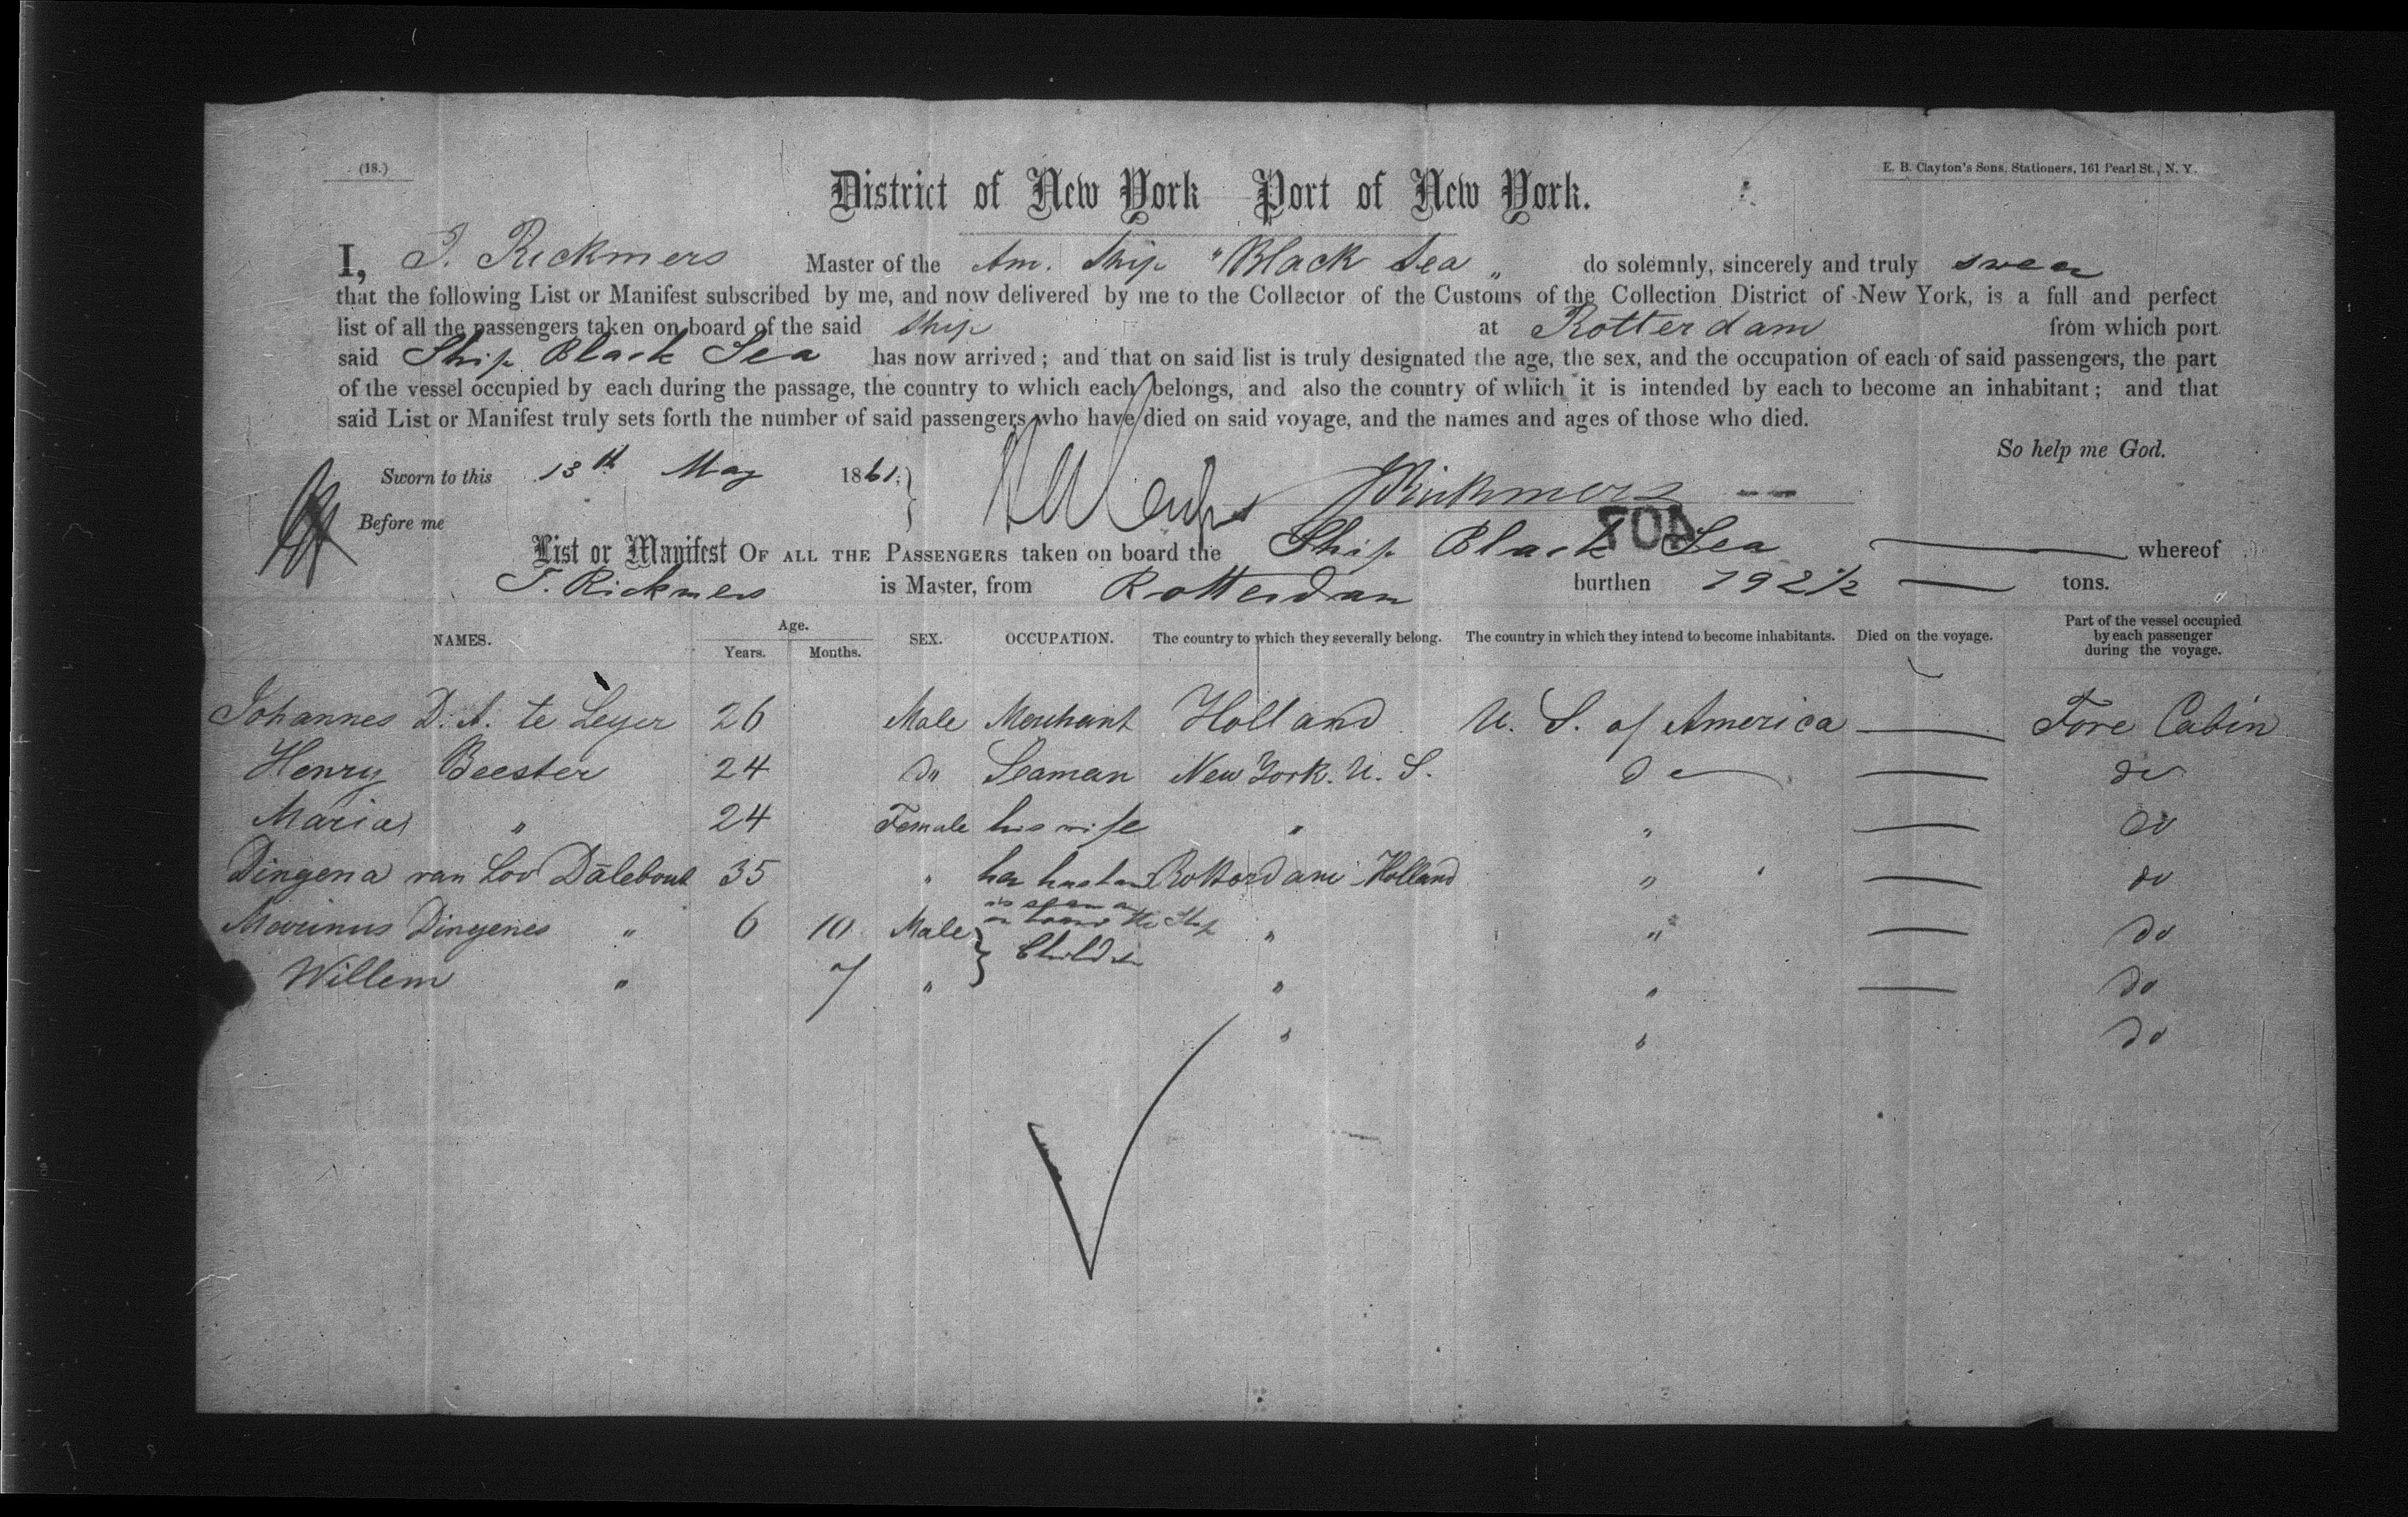 (18.)
E. B. Clayton's Sons, Stationers, 161 Pearl St., N. Y.
District of New York Port of New York.
I, J. Rickmers Master of the Am. Ship "Black Sea" do solemnly, sincerely and truly swear
that the following List or Manifest subscribed by me, and now delivered by me to the Collector of the Customs of the Collection District of New York, is a full and perfect
list of all the passengers taken on board of the said Ship at Rotterdam from which port
said Ship Black Sea has now arrived; and that on said list is truly designated the age, the sex, and the occupation of each of said passengers, the part
of the vessel occupied by each during the passage, the country to which each belongs, and also the country of which it is intended by each to become an inhabitant; and that
said List or Manifest truly sets forth the number of said passengers who have died on said voyage, and the names and ages of those who died.
So help me God.
Sworn to this 13th May 1861. Rickmers
Before me
408
List or Manifest OF ALL THE PASSENGERS taken on board the Ship Black Sea whereof
J. Rickmers is Master, from Rotterdam burthen 792½ tons.
NAMES. Age. Years. Months. SEX. OCCUPATION. The country to which they severally belong. The country in which they intend to become inhabitants. Died on the voyage. Part of the vessel occupied by each passenger during the voyage.
Johannes D. A. te Leyer 26 Male Merchant Holland U. S. of America — Fore Cabin
Henry Beester 24 do Seaman New York. U. S. do — do
Maria " 24 Female his wife " " — do
Dingena van Loo Dalebout 35 " her husband Rotterdam Holland " — do
is seaman
on board the Ship
Marinus Dingenes " 6 10 Male } Children " " — do
Willem " 7 " " " — do
" " do